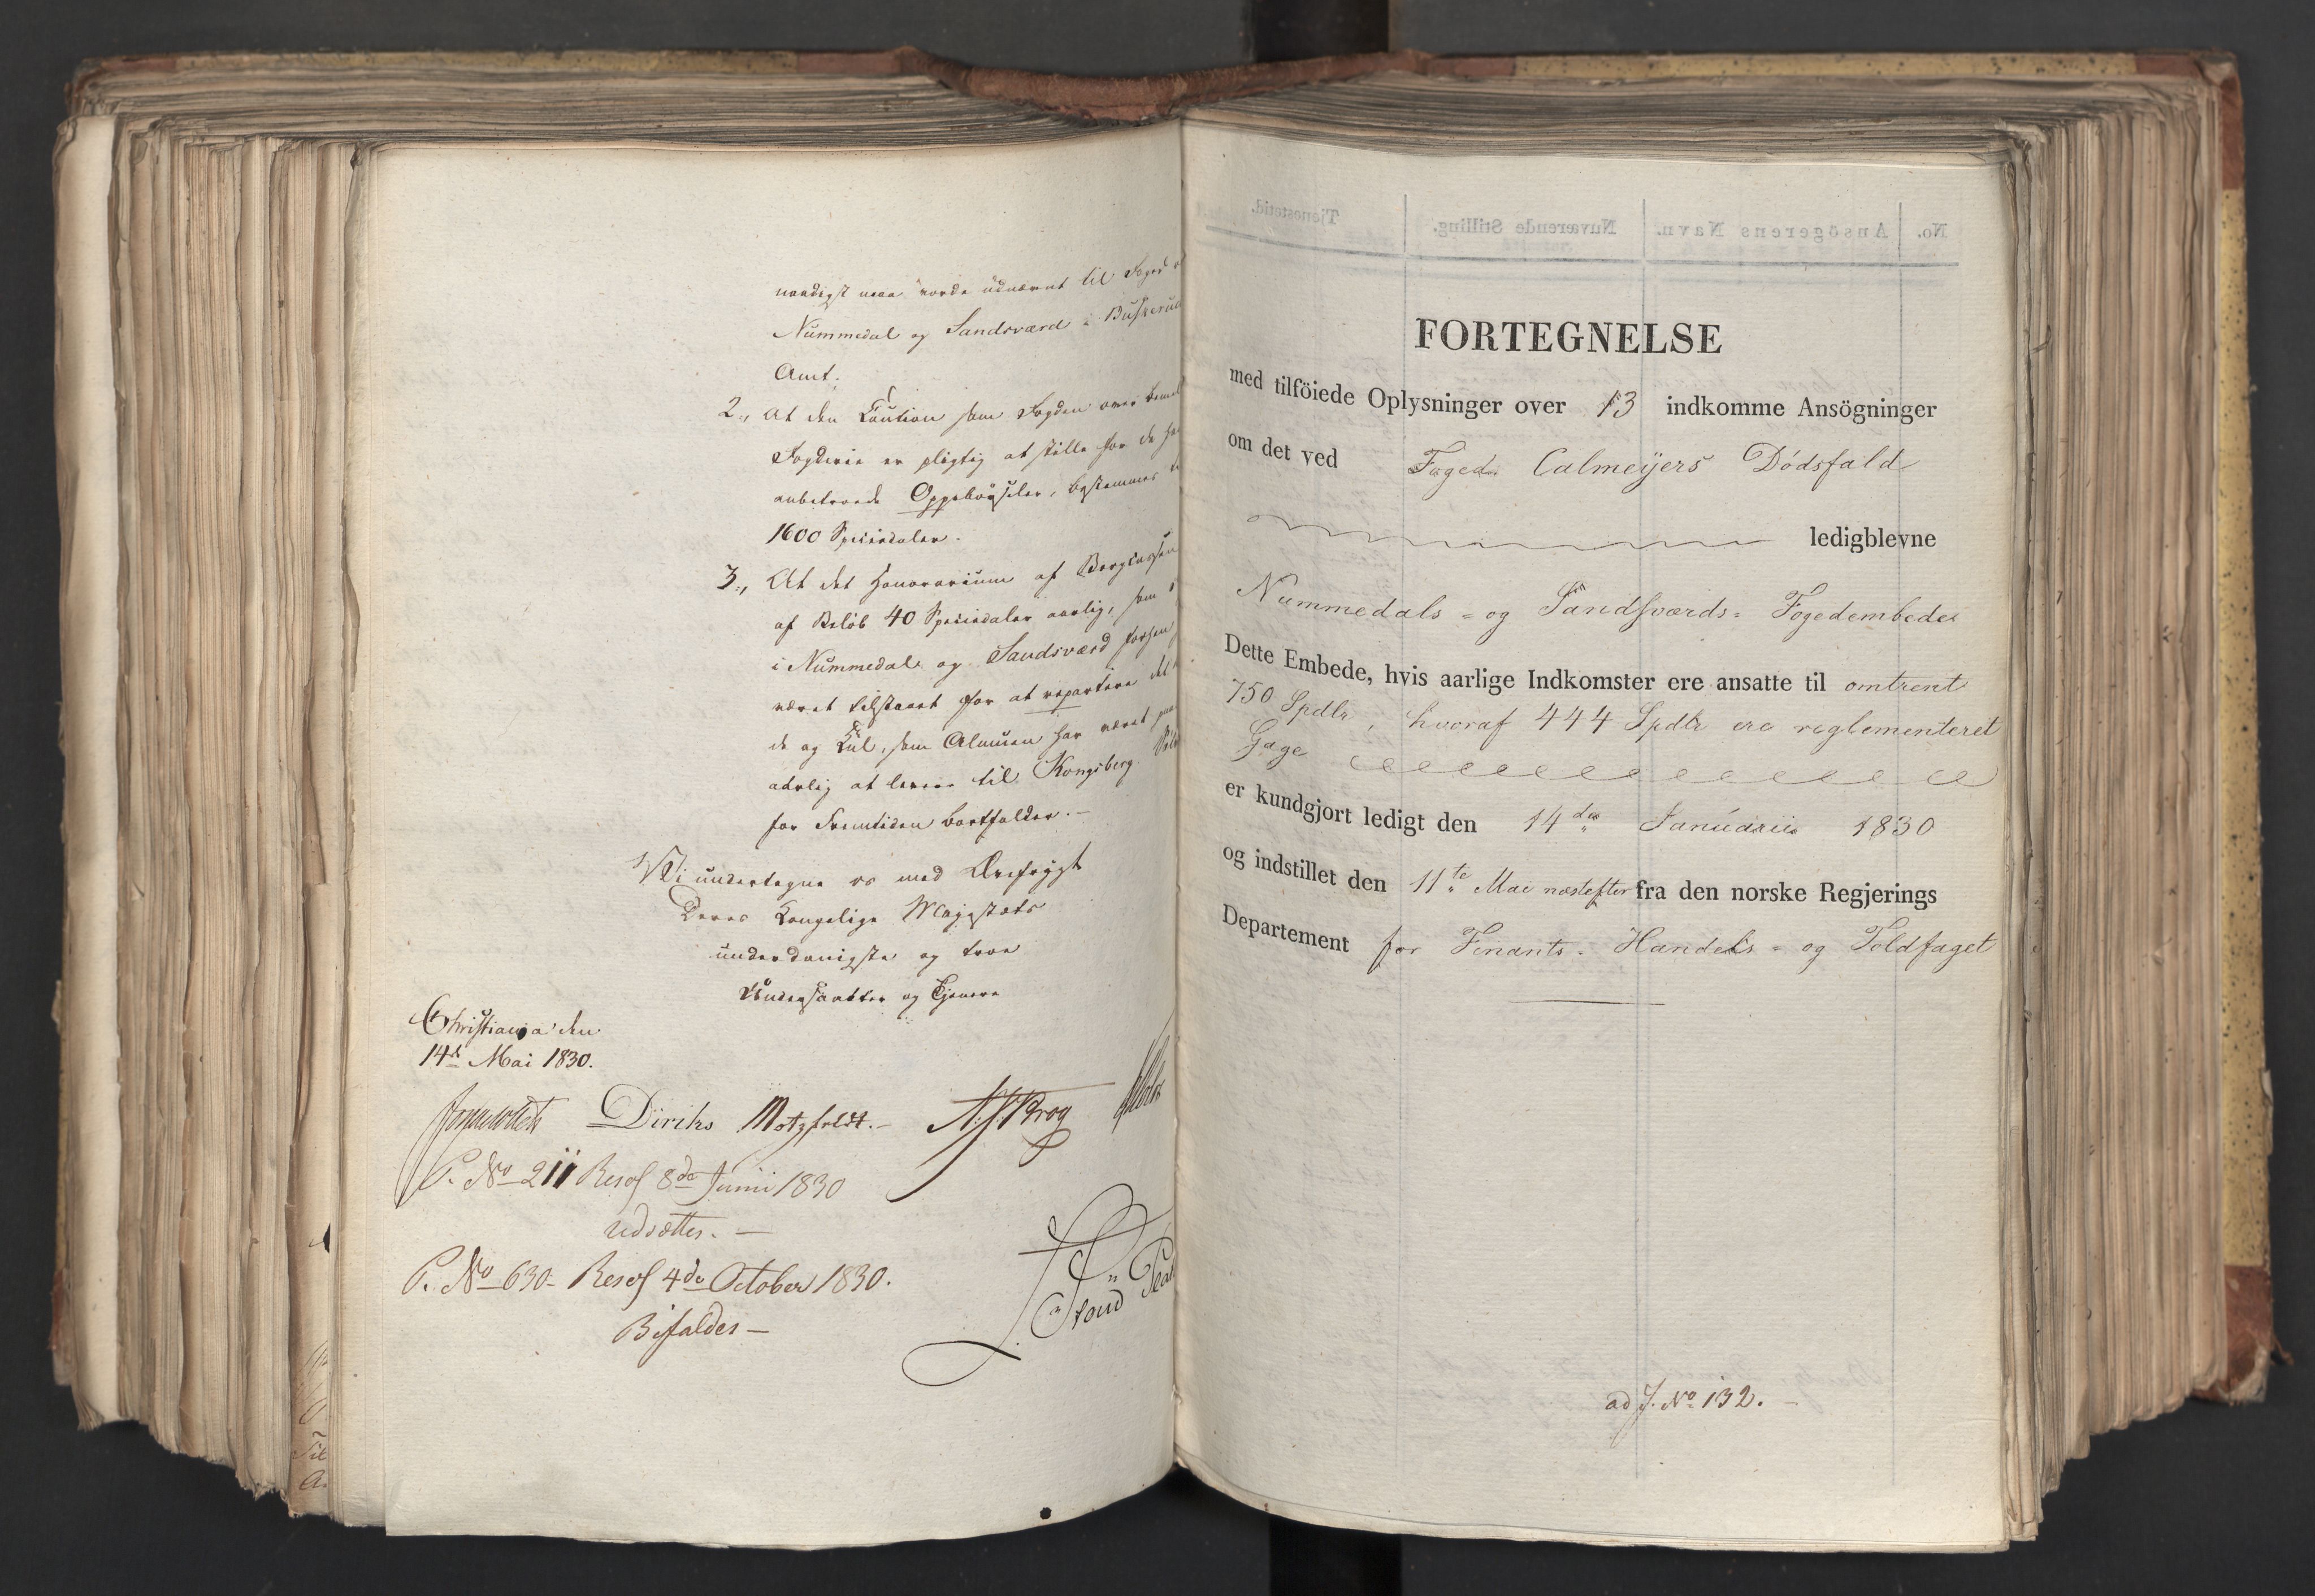 naadigst maa vorde udnævnt til Foged
Nummedal og Sandsværd i Buskerud
Amt.
2., At den Caution som Fogden over
Fogderie er pligtig at stille for de
anbetroede Oppebørseler, bestemmes
1600 Speciedaler.
3., At det Honorarium af Bergcassen
af Beløb 40 Speciedaler aarlig, som
i Nummedal og Sandsværd
været tilstaaet for at repartere
de og Kul, som Almuen har været
aarlig at levere til Kongsberg
for Fremtiden bortfalder.-
Vi undertegne os med Ærefrygt
Deres Kongelige Majestæts
underdanigste og troe
Undersaatter og Tjenere
Christiania den
14de Mai 1830.
Diriks Motzfeldt.- Krog
P. No 211 Resol 8de Junii 1830
udsættes. —
P. No 630- Resol 4de October 1830.
Bifaldes —
No. Ansögerens Navn. Nuværende Stilling. Tjenestetid.
FORTEGNELSE
med tilföiede Oplysninger over 13 indkomme Ansögninger
om det ved Foged Calmeijers Dödsfald
ledigblevne
Nummedals- og Sandsværds- Fogedembede
Dette Embede, hvis aarlige Indkomster ere ansatte til omtrent
750 Spdlr, hvoraf 444 Spdlr ere reglementeret
Gage
er kundgjort ledigt den 14de Januarii 1830
og indstillet den 11te Mai næstefter fra den norske Regjerings
Departement for Finants- Handels- og Toldfaget
ad J. No 132.